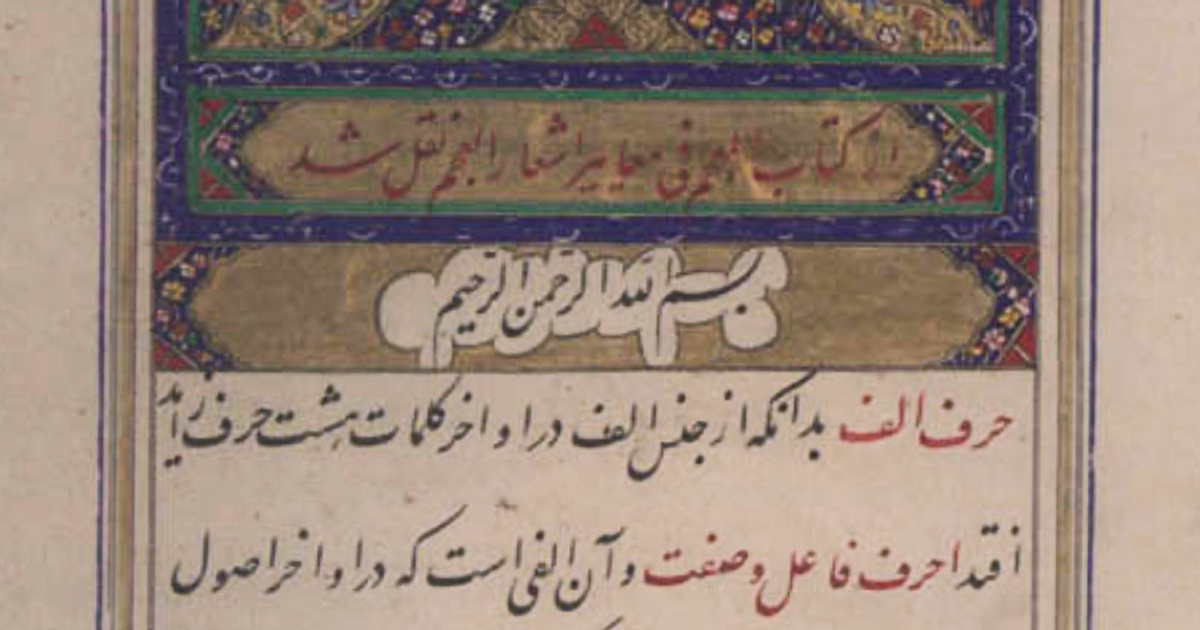 از کتاب المعجم فی معاییر اشعار العجم نقل شد
بسم الله الرحمن الرحیم
حرف الف بدانکه از جنس الف در اواخر کلمات هشت حرف زاید
افتد احرف فاعل وصفت و آن الفی است که در اواخر اصول